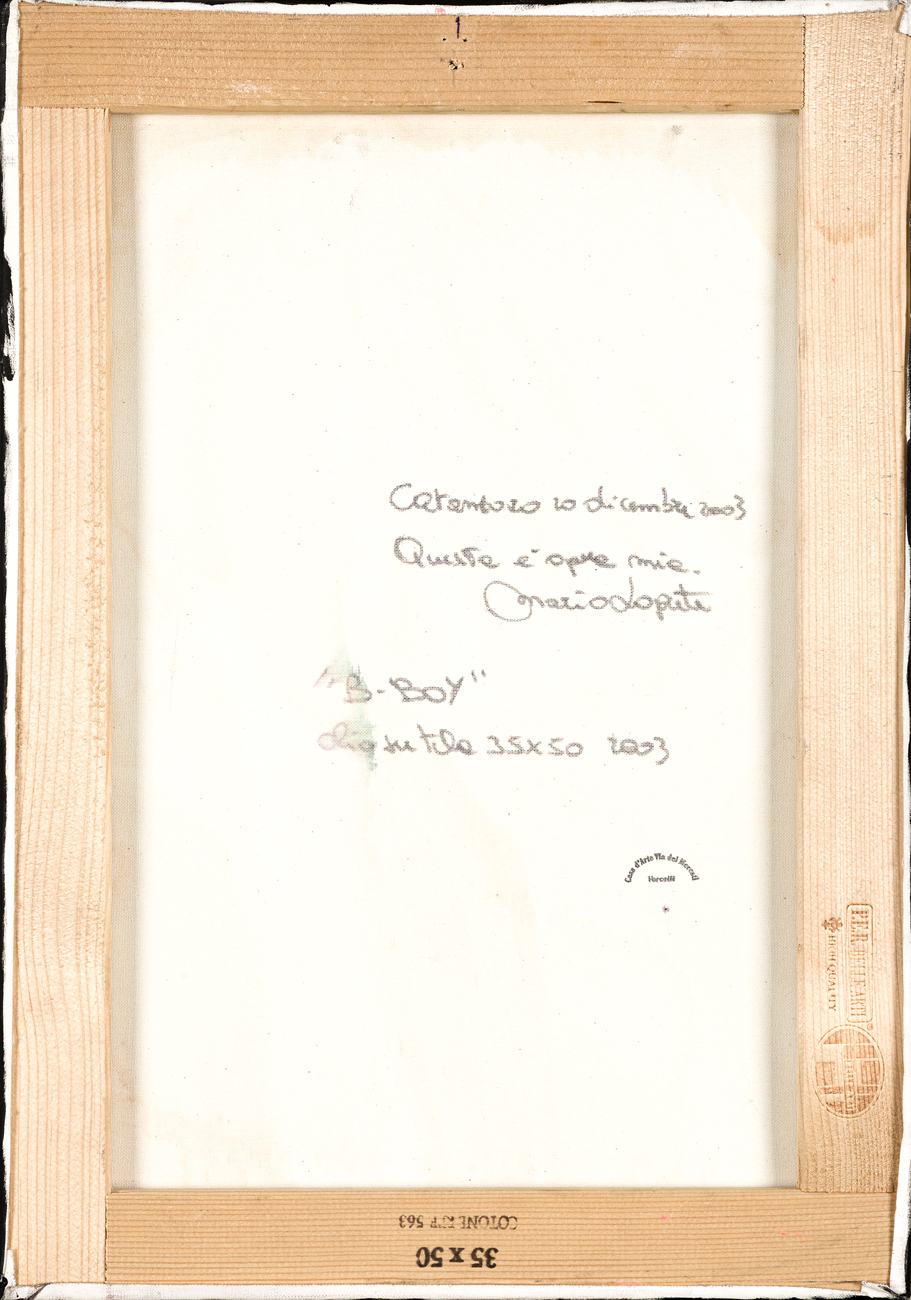 Catanzaro 20 dicembre 2003
Questa è opera mia.
Orazio Lopeta
"B-BOY"
olio su tela 35x50 2003
Casa d'Arte Via dei Mercati
Vercelli
P.E.R. BELLE ARTI
HIGH QUALITY
COTONE RIF 563
35 x 50